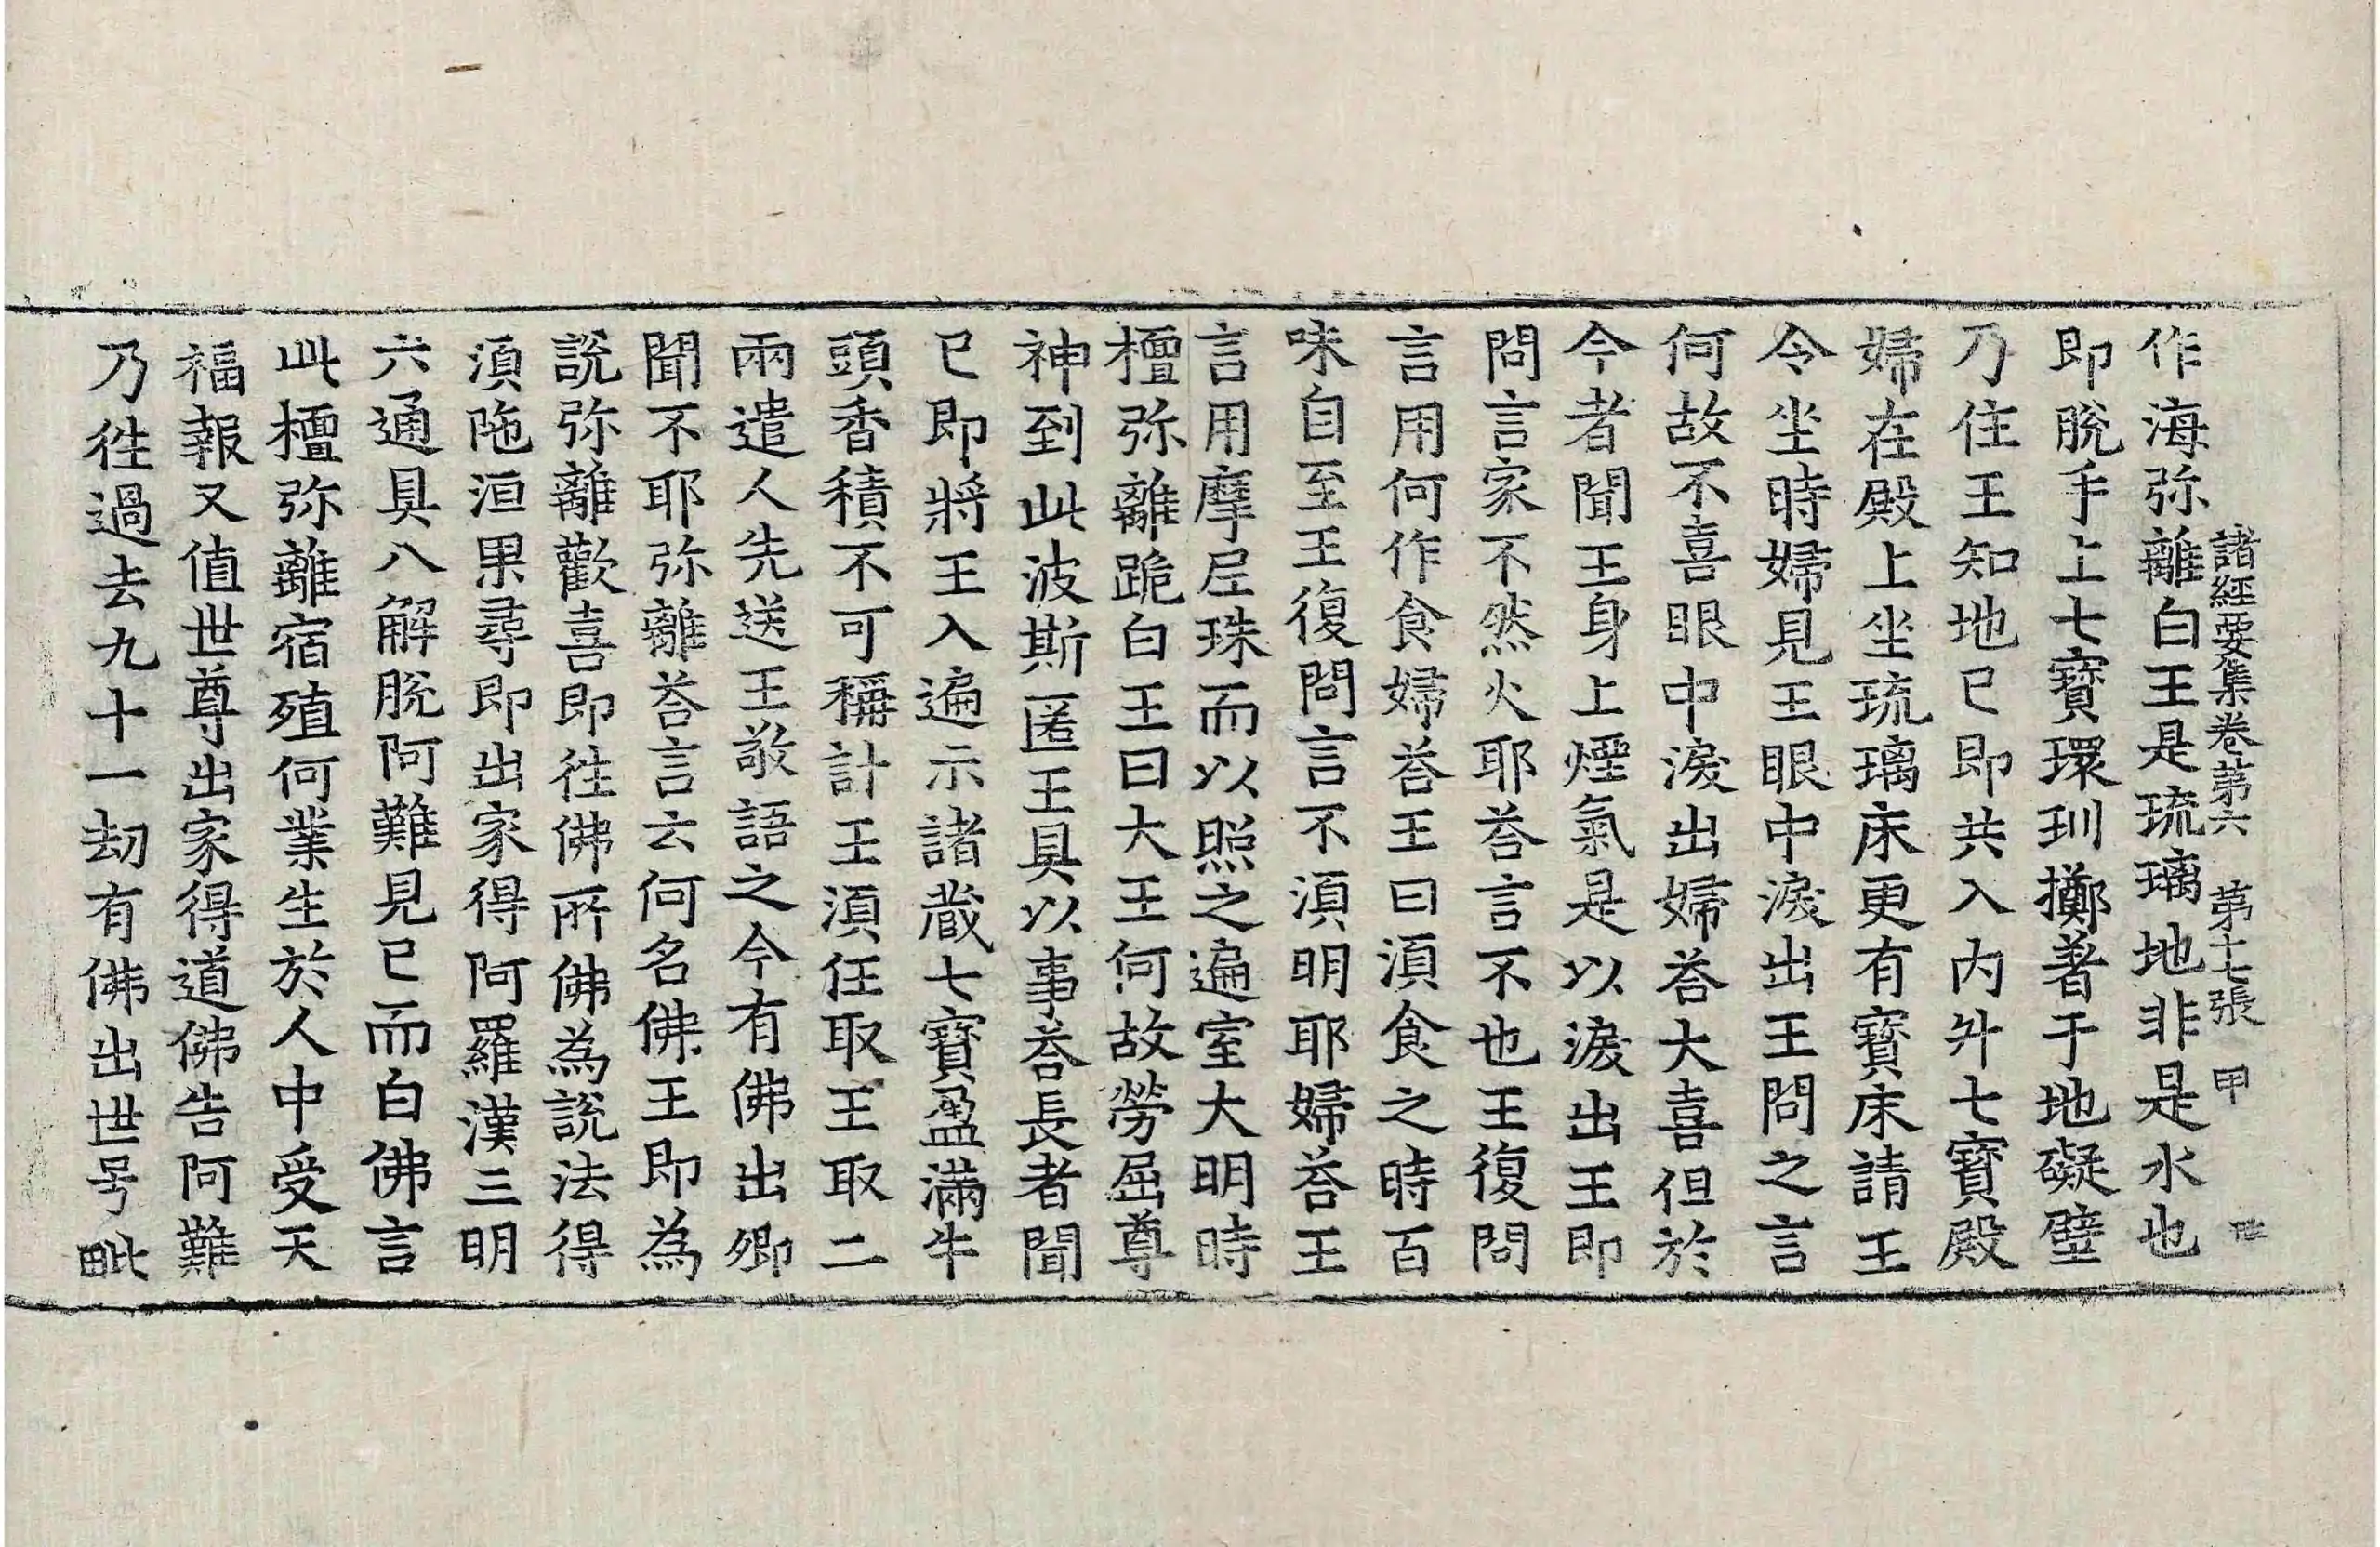 諸經要集卷第六　第十七張　甲
作海弥離白王是琉璃地非是水也
即脫手上七寶環玔擲著于地礙璧
乃住王知地已即共入內升七寶殿
婦在殿上坐琉璃床更有寶床請王
令坐時婦見王眼中淚出王問之言
何故不喜眼中淚出婦荅大喜但於
今者聞王身上煙氣是以淚出王即
問言家不然火耶荅言不也王復問
言用何作食婦荅王曰須食之時百
味自至王復問言不須明耶婦荅王
言用摩尼珠而以照之遍室大明時
檀弥離跪白王曰大王何故勞屈尊
神到此波斯匿王具以事荅長者聞
已即將王入遍示諸藏七寶盈滿牛
頭香積不可稱計王須任取王取二
兩遣人先送王敬語之今有佛出卿
聞不耶弥離荅言云何名佛王即為
說弥離歡喜即往佛所佛為說法得
須陁洹果尋即出家得阿羅漢三明
六通具八解脫阿難見已而白佛言
此檀弥離宿殖何業生於人中受天
福報又值世尊出家得道佛告阿難
乃往過去九十一劫有佛出世号毗